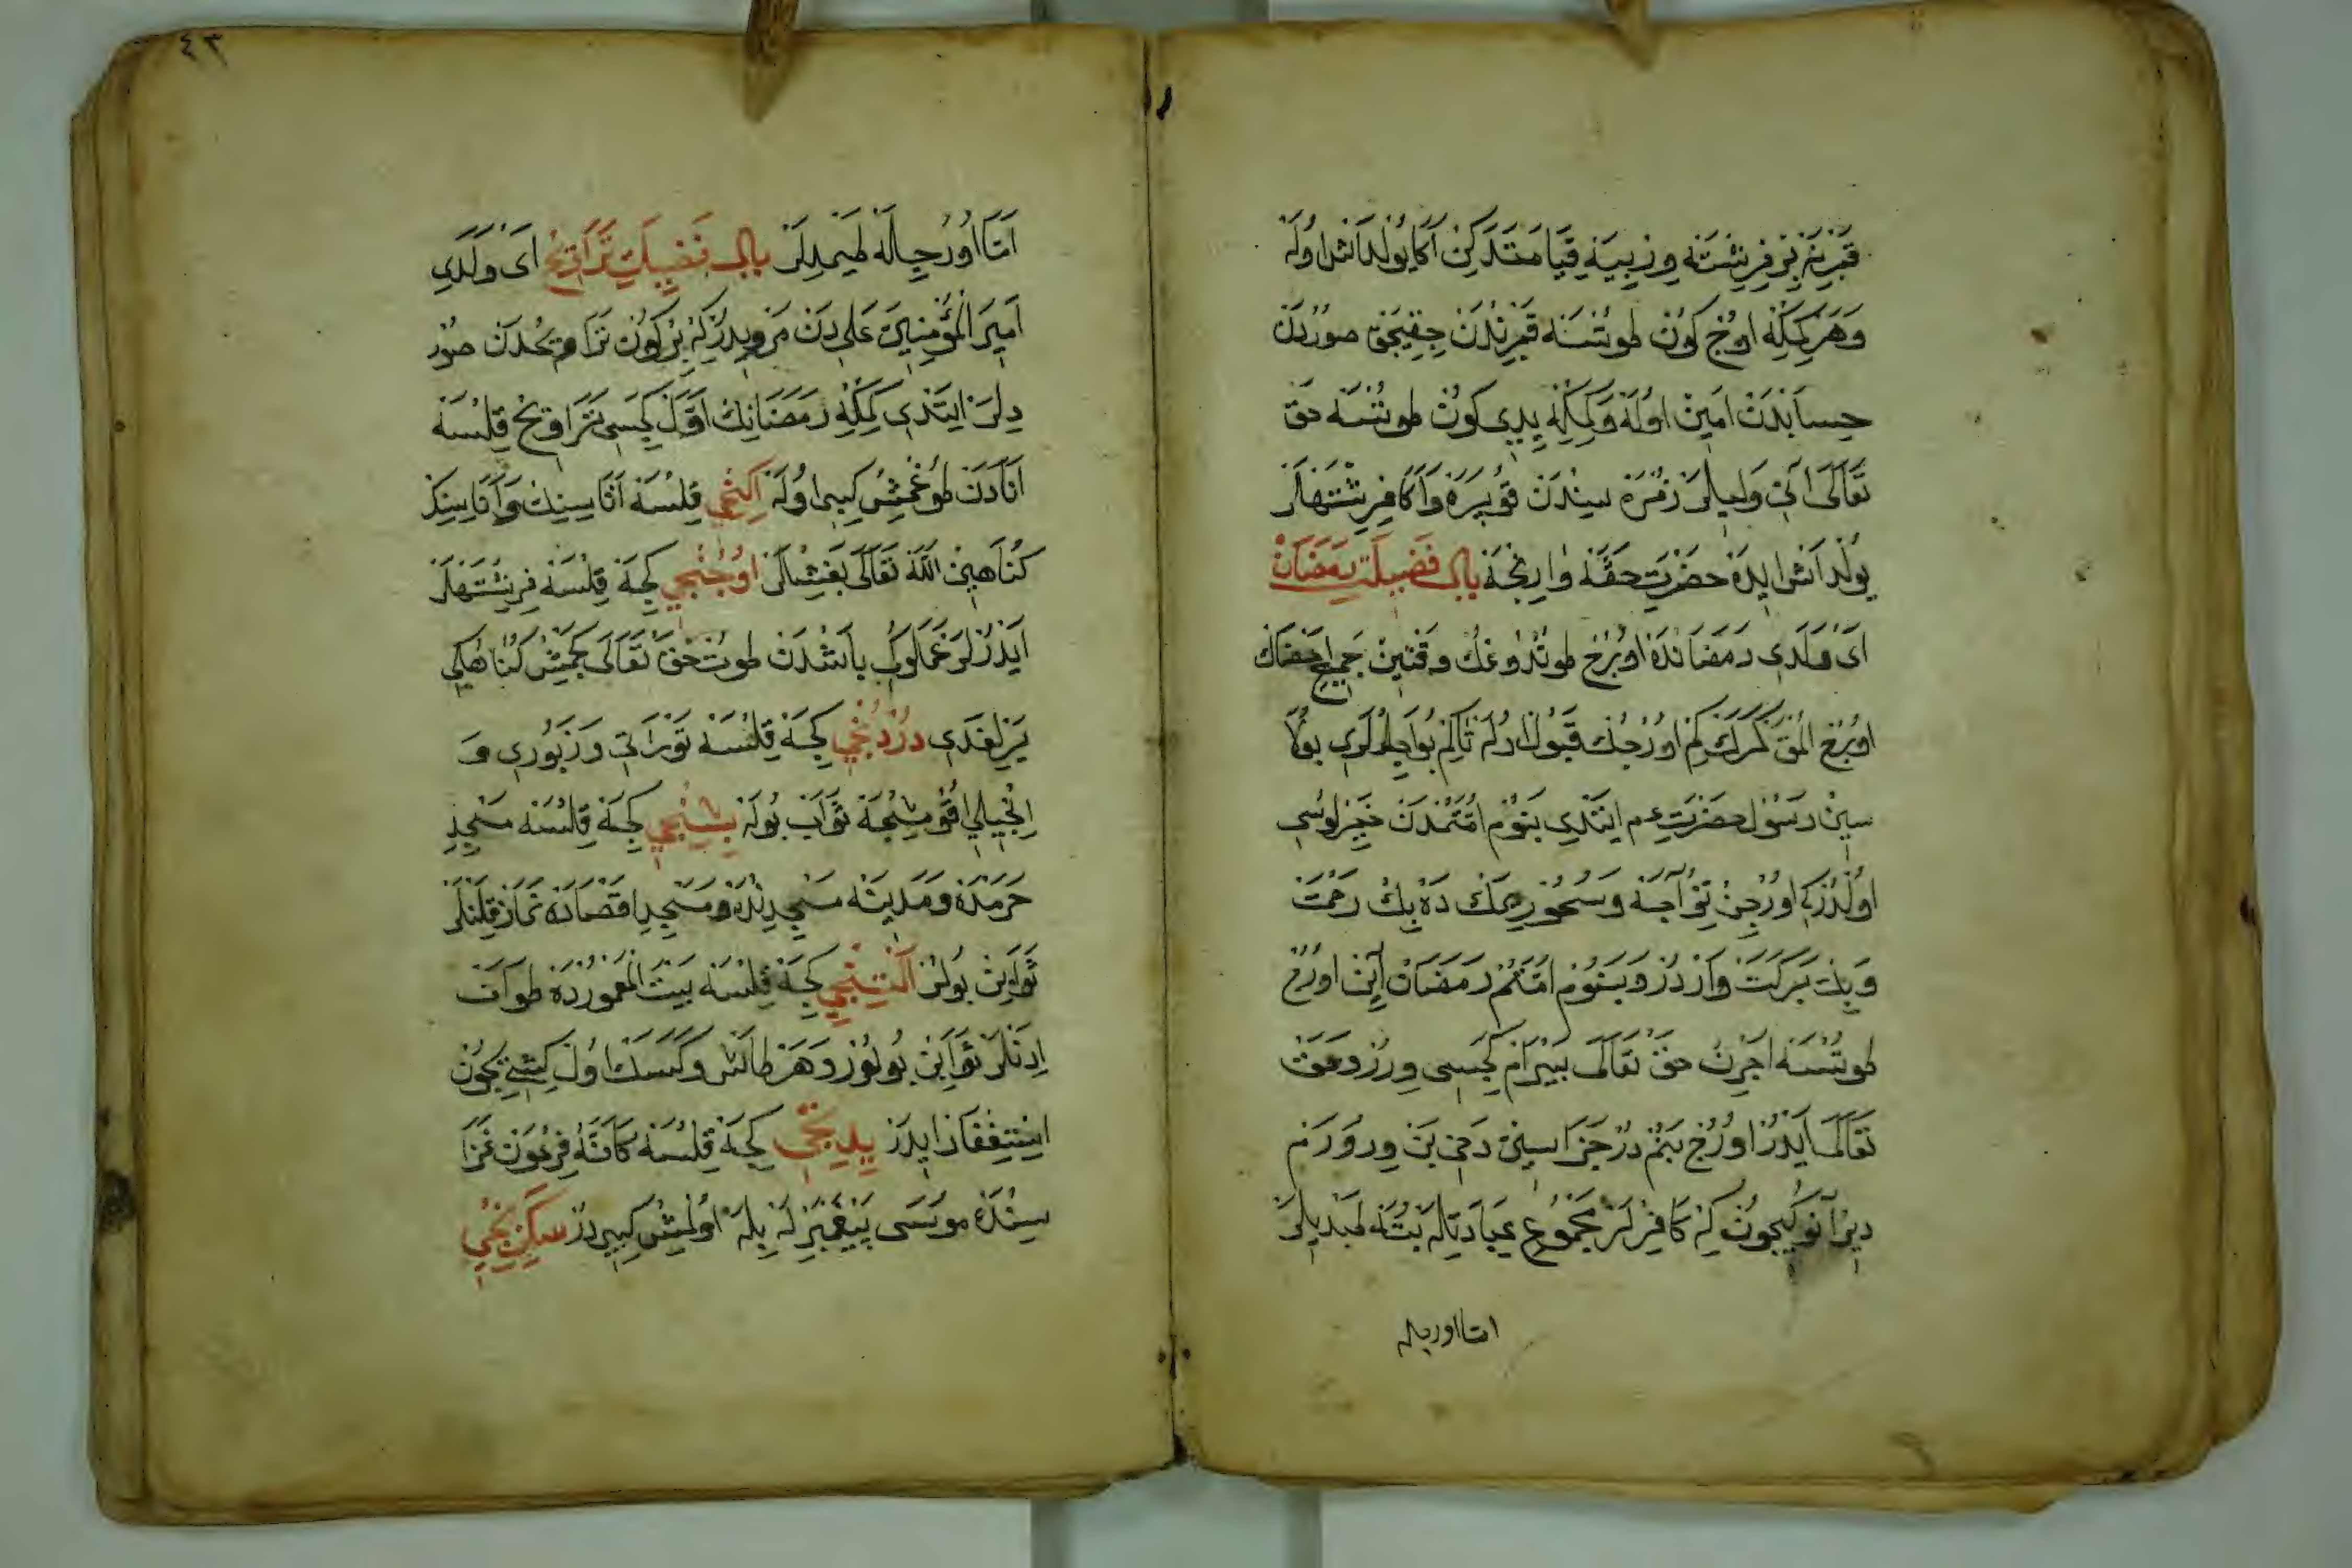 قَبْرِنَه بِرْ فِرِشْتَه وِرِبِيَه قِيَامَتَدَكِنْ اَكَا يُولْدَاشْ اُولَه
وَهَرْ كِمْكِه اُوچْ كُونْ طُوتْسَه قَبْرِنْدَنْ چِقِيجَقْ صُورُدَنْ
حِسَابْدَنْ اَمِينْ اُولَه وَكِمْكِه يِدِى كُونْ طُوتْسَه حَقْ
تَعَالَى اَنِى وَلِيلَرْ زُمْرَه سِنْدَنْ قُوپَرَه وَاَكَا فِرِشْتَهلَرْ
يُولْدَاشْ اِيدَه حَضْرَتِ حَقَّه وَارِنْجَه بَابُ فَضِيلَتِ رَمَضَانْ
اَىْ وَلَدِى رَمَضَانْدَه اُورُجْ طُوتْدُوغُكْ وَقْتِينْ جَمِيعِ اَعْضَاكْ
اُورُجْ اُلْمَقْ كَرَكْ كِمْ اُورُجُكْ قَبُولْ اُولَه تَاكِمْ بُو اَجِلْلَرِى بُولَا
سِينْ رَسُول حَضْرَتِ عم اَيْتَدِى بَنُومْ اُمَّتُمْدَنْ خَيِرْلُوسِى
اُولْدُرْكِه اُورُجِنْ تِزْ اَچَه وَسُحُورِ يِمَكْ دَه بِيكْ رَحْمَتْ
وَبِيكْ بَرَكَتْ وَارْدُرْ وَبَنُومْ اُمَّتُمْ رَمَضَانْ اَيِنْ اُورُجْ
طُوتْسَه اَجْرِنْ حَقْ تَعَالَى بَيْرَامْ كِجَسِى وِرُرْ وَحَقْ
تَعَالَى اَيْدُرْ اُورُجْ بَنُمْدُرْ جَزَاسِينْ دَخِى بَنْ وِرُورَمْ
دِيرْ اَنُوكِيچُونْ كِه كَافِرْلَرْ مَجْمُوعِ عِبَادَتِلَه بُتَه طَپْدِيلَرْ
امّا اورجله
٤٣
اَمَّا اُورُجِلَه طَپْمَدِلَرْ بَابُ فَضِيلَتِ تَرَاوِيحْ اَىْ وَلَدِى
اَمِيرَ الْمُؤْمِنِينَ عَلِى دَنْ مَرْوِيدُرْكِه بِرْ كُونْ تَرَاوِيحْدَنْ صُورْ
دِلَرْ اَيْتَدِى كِمْكِه رَمَضَانِكْ اَوَّلْ كِجَسِى تَرَاوِيحْ قِلْسَه
اَنَادَنْ طُوغْمِشْ كِبِى اُولَه اِكِنْجِى قِلْسَه اَتَاسِينِكْ وَاَنَاسِينِكْ
كُنَاهِينْ اَللّٰه تَعَالَى بَغِشْلَرْ اُوچُنْجِى كِجَه قِلْسَه فِرِشْتَهلَرْ
اَيْدُرْلَرْ عَمَلُوكِى بَاشْدَنْ طُوتْ حَقْ تَعَالَى كَچْمِشْ كُنَاهْكِى
يَرْلِغَدِى دُرْدُنْجِى كِجَه قِلْسَه تَوْرَاتِى وَزَبُورِى وَ
اِنْجِيلِى اُقُومِشْجَه ثَوَابْ بُولَه بِشِنْجِى كِجَه قِلْسَه مَسْجِدِ
حَرَمْدَه وَمَدِينَه مَسْجِدِنْدَه وَمَسْجِدِ اَقْصَادَه نَمَازْ قِلَنْلَرْ
ثَوَابِنْ بُولُرْ اَلْتِنْجِى كِجَه قِلْسَه بَيْتُ الْمَعْمُورْدَه طَوَافْ
اِدَنْلَرْ ثَوَابِنْ بُولُوزْ وَهَرْ طَاشْ وَكَسَكْ اُولْ كِشِى چُونْ
اِسْتِغْفَارْ اِيدَرْ يِدِنْجِى كِجَه قِلْسَه كَانَّهُ فِرْعَوْنْ غَزَا
سِنْدَه مُوسَى پَيْغَمْبَرْلَه بِلَه اُولْمِشْ كِبِيدُرْ سَكِزِنْجِى